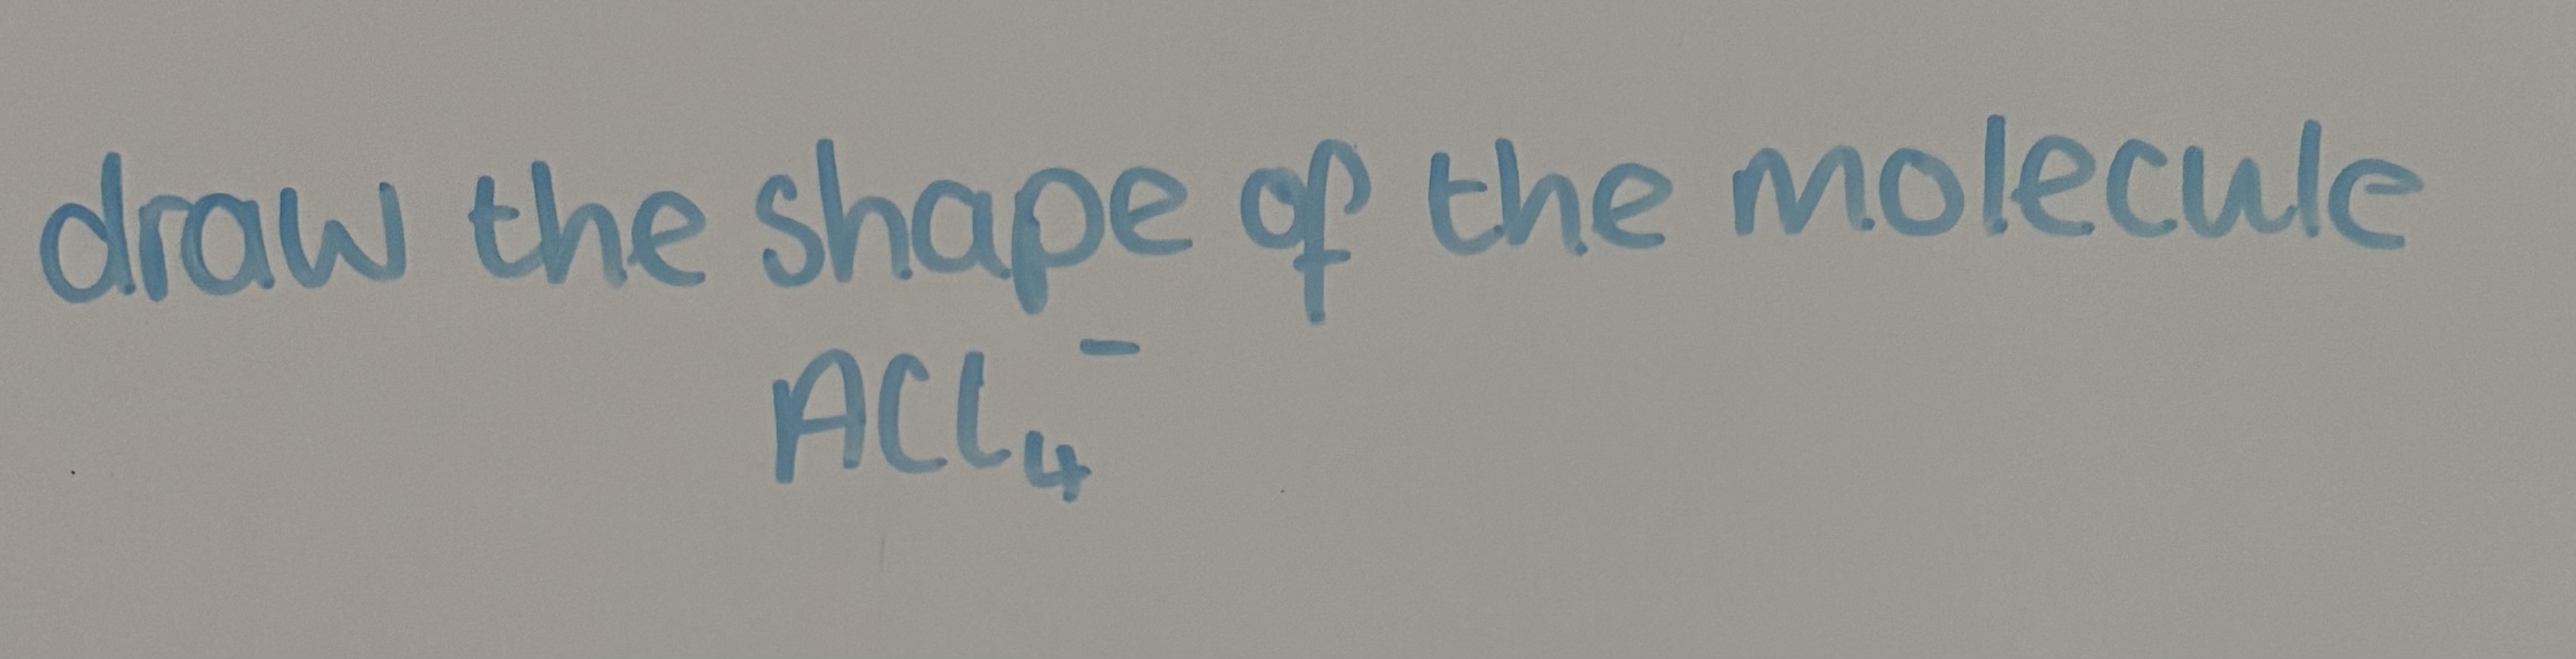 draw the shape of the molecule
ACl₄⁻